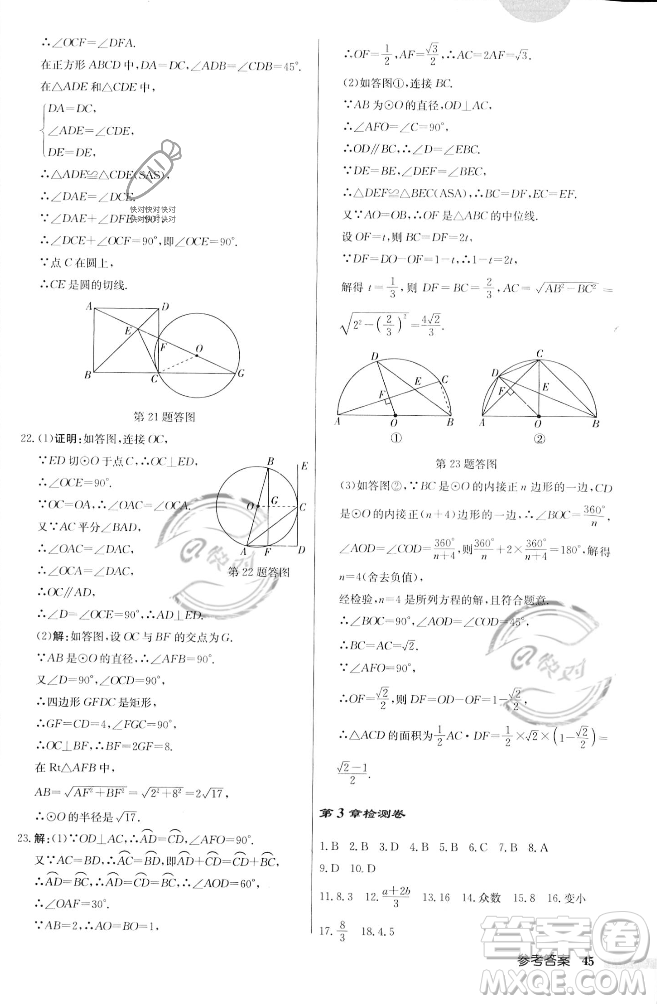 ∴∠OCF=∠DFA.
在正方形 ABCD 中,DA=DC,∠ADB=∠CDB=45°.
在△ADE 和△CDE 中,
DA=DC,
∠ADE=∠CDE,
DE=DE,
∴△ADE≌△CDE(SAS).
∴∠DAE=∠DCE.
快对快对快对
快对快对快对
∵∠DAE+∠DFE=90°,
∴∠DCE+∠OCF=90°,即∠OCE=90°.
∵点 C 在圆上,
∴CE是圆的切线.
A D E F O B C G
第 21 题答图
22.(1)证明:如答图,连接 OC,
∵ED 切⊙O 于点 C,∴OC⊥ED.
∴∠OCE=90°.
∵OC=OA,
∴∠OAC=∠OCA.
又∵AC平分∠BAD,
∴∠OAC=∠DAC.
∴∠OCA=∠DAC.
∴OC∥AD.
∴∠D=∠OCE=90°.
B E O G C A F D
第 22 题答图
(2)解:如答图,设 OC 与 BF 的交点为 G.
∵AB 为⊙O 的直径,∴∠AFB=90°.
又∵∠D=90°,∠OCD=90°,
∴四边形 GFDC 是矩形,
∴GF=CD=4,∠OGF=90°.
∴OG⊥BF,∴BF=2GF=8.
在 Rt△AFB 中,
AB=√(AF²+BF²)=√(2²+8²)=2√17.
∴⊙O 的半径是√17.
23.解:(1)∵OD⊥AC,∴AD⌒=CD⌒,∠AFO=90°.
又∵AC=BD,∴AC⌒=BD⌒,即AD⌒+CD⌒=CD⌒+BC⌒.
∴AD⌒=BC⌒.∴AD⌒=CD⌒=BC⌒.
∴∠AOF=60°.
∴∠OAF=30°.
∵AB=2,∴AO=BO=1.
∴OF=1/2,AF=√3/2.∴AC=2AF=√3.
(2)如答图①,连接 BC.
∵AB 为⊙O 的直径,OD⊥AC,
∴∠AFO=∠C=90°.
∴OD∥BC.∴∠D=∠EBC.
∵DE=BE,∠DEF=∠BEC,
∴△DEF≌△BEC(ASA),∴DF=BC.
又∵AO=OB,∴OF是△ABC 的中位线.
设 OF=t,则 BC=DF=2t,
∵DF=DO-OF=1-t,∴1-t=2t,
解得 t=1/3,则 DF=BC=2/3.∴AC=√(AB²-BC²)=
√(2²-(2/3)²)=4√2/3.
D C E F A O B
①
C D F A O B
②
第 23 题答图
(3)如答图②,∵BC是⊙O的内接正n边形的一边,CD
是⊙O的内接正(n+4)边形的一边,∴∠BOC=360°/n,
∠COD=∠AOD=360°/(n+4),则360°/n+2×360°/(n+4)=180°,解得
n=4(舍去负值),
经检验,n=4是所列方程的解,且符合题意.
∴∠BOC=90°,∠AOC=90°.
∴BC=AC=√2.
∵∠AFO=90°.
∴OF=√2/2,则 DF=OD-OF=1-√2/2,
∴△ACD 的面积为1/2 AC·DF=1/2×√2×(1-√2/2)=
(√2-1)/2.
第 3 章检测卷
1.B 2.B 3.D 4.C 5.B 6.C 7.B 8.A
9.D 10.D
11.8.3 12.(a+2b)/3 13.16 14.众数 15.8 16.变小
17.8/3 18.4.5
参考答案 45